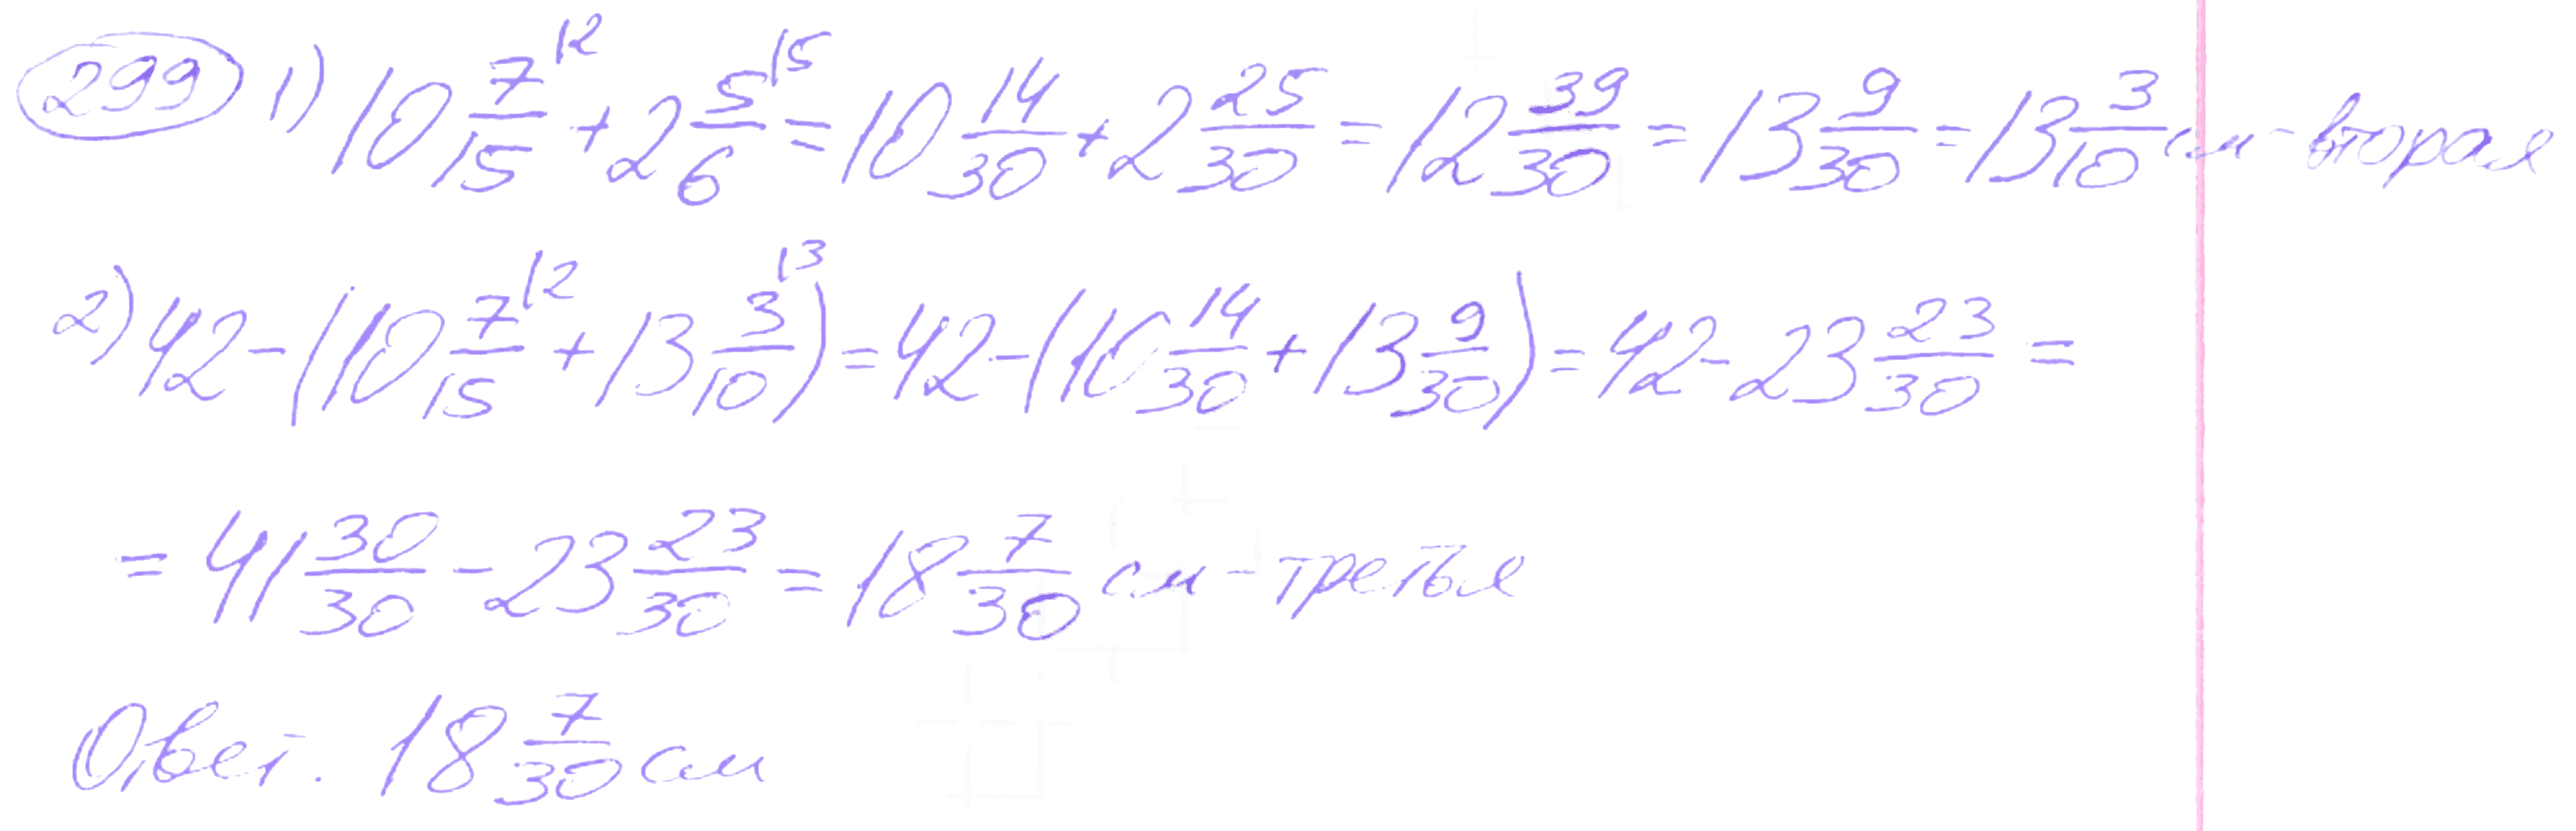 299 1) 10 7/15 |2 + 2 5/6 |5 = 10 14/30 + 2 25/30 = 12 39/30 = 13 9/30 = 13 3/10 см - вторая
2) 42 - (10 7/15 |2 + 13 3/10 |3) = 42 - (10 14/30 + 13 9/30) = 42 - 23 23/30 =
= 41 30/30 - 23 23/30 = 18 7/30 см - третья
Ответ. 18 7/30 см